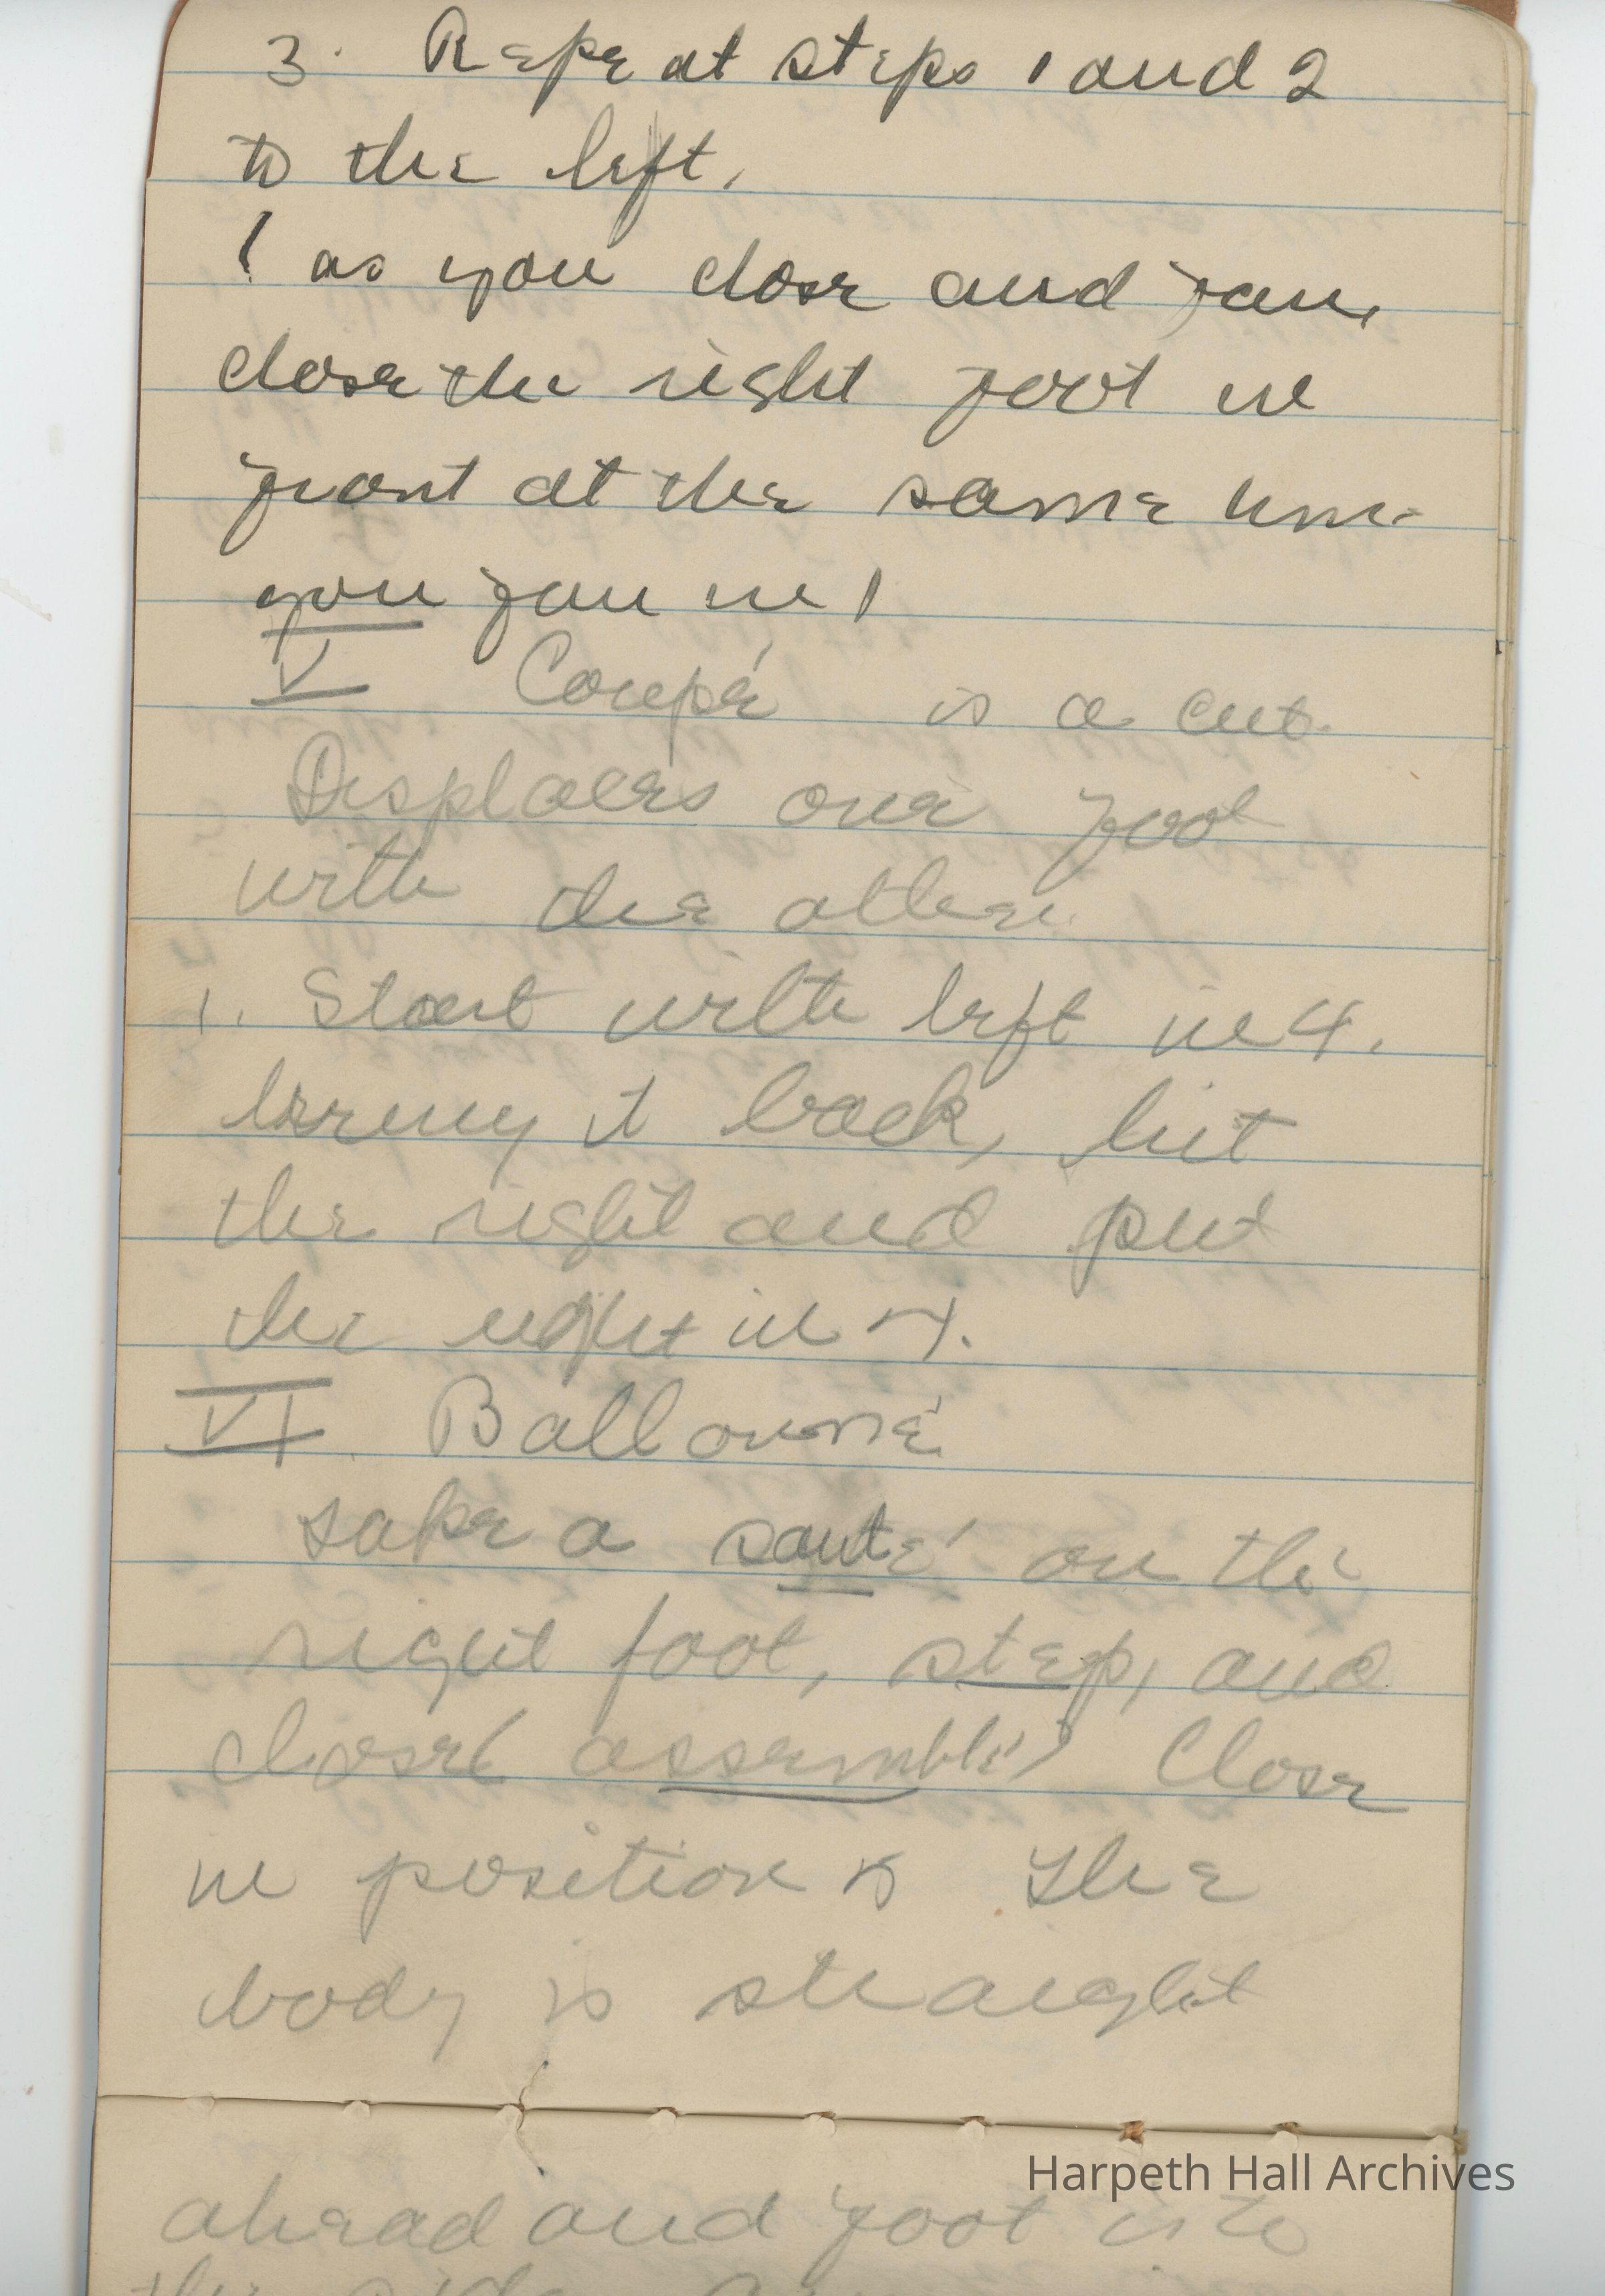 3. Repeat steps 1 and 2
to the left.
( as you close and fan,
close the right foot in
front at the same time
you fan in )
V Coupé is a cut.
Displaces one foot
with the other.
1. Start with left in 4.
bring it back, hit
the right and put
the right in 4.
VI. Ballonné
Take a sauté on the
right foot, step, and
close ( assemblé ) Close
in position 5 The
body is straight
ahead and foot is to
the side
Harpeth Hall Archives